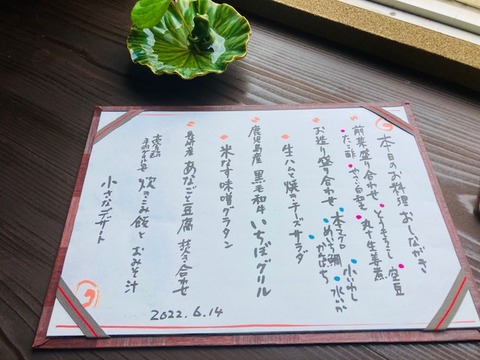 本日のお料理 おしながき
前菜盛り合わせ とうもろこし 空豆
たこ酢 白和え 丸十生姜煮
お造り盛り合わせ 本マグロ 小いわし
めいち鯛 水いか
かんぱち
生ハムと焼チーズサラダ
鹿児島産 黒毛和牛 いちぼグリル
米なす味噌グラタン
長崎産 あなごと豆腐 焚き合わせ
炊きこみ飯と おみそ汁
小さなデザート
2022.6.14